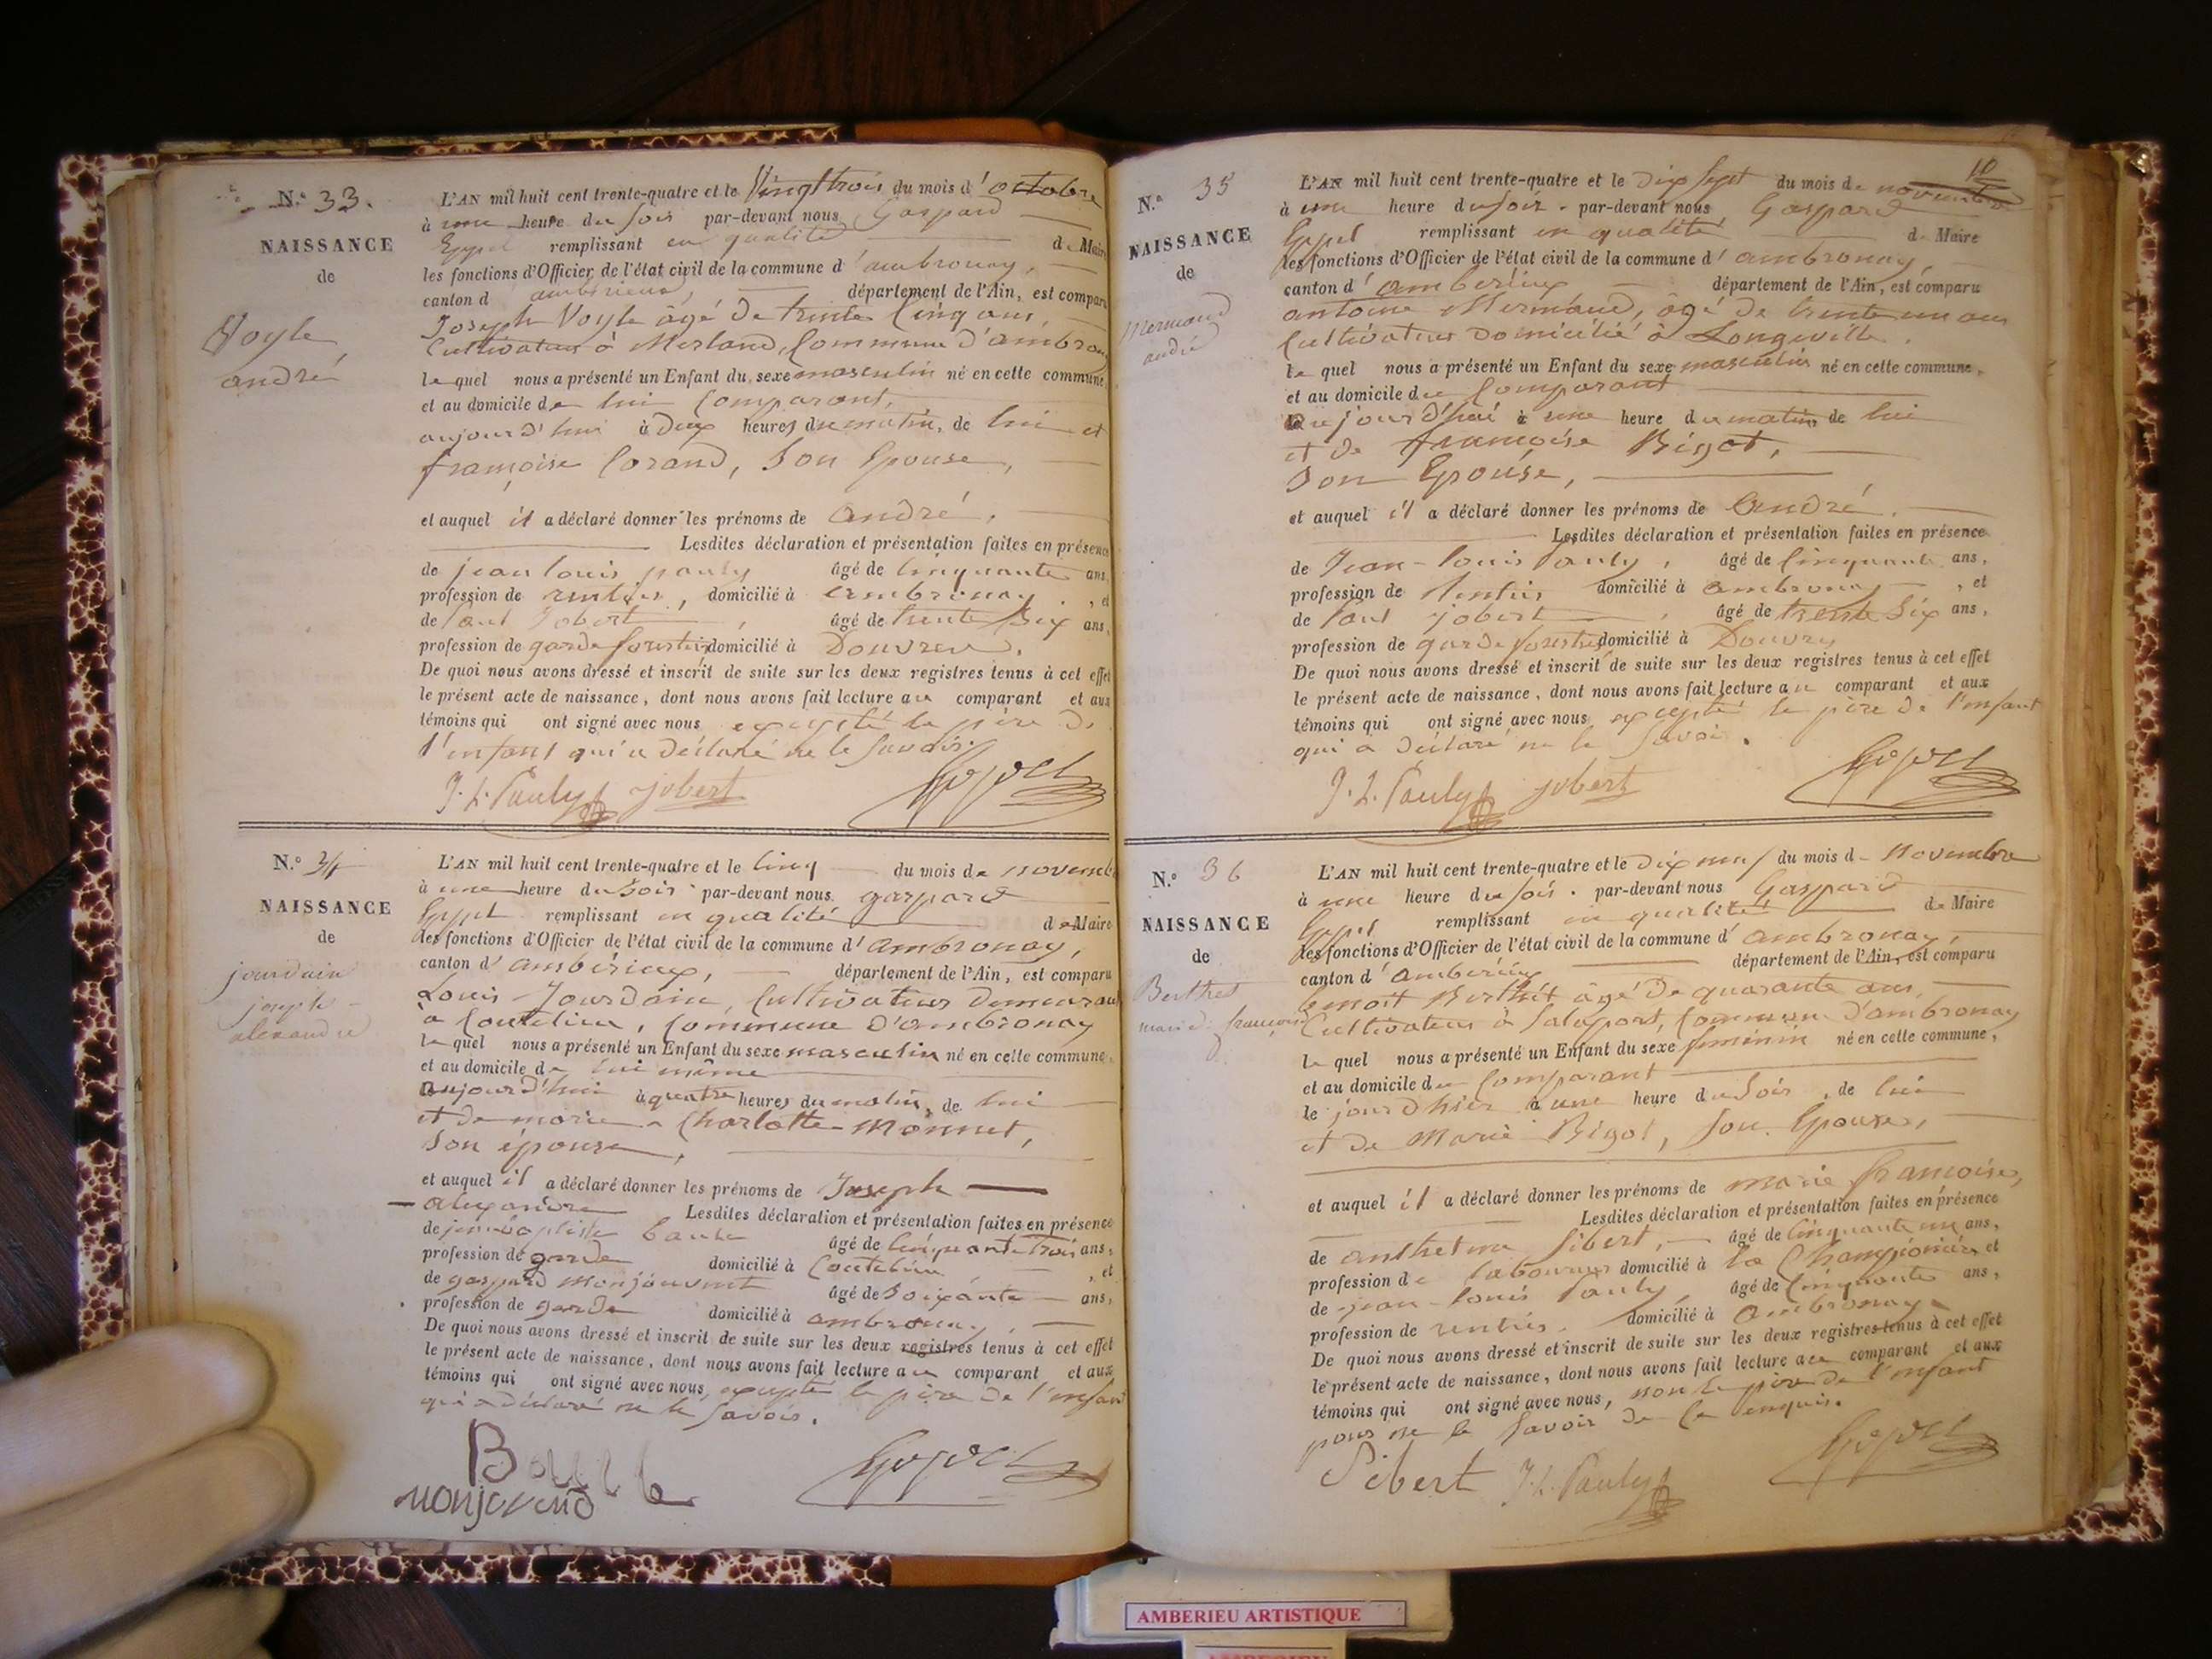 N.° 33.
NAISSANCE
de
Voyle
andré
L'AN mil huit cent trente-quatre et le Vingt trois du mois d'octobre
à une heure du soir par-devant nous Gaspard
Eppel remplissant en qualité de Maire
les fonctions d'Officier de l'état civil de la commune d'ambronay,
canton d ambérieux, département de l'Ain, est comparu
Joseph Voyle âgé de trente cinq ans,
Cultivateur à Merland, Commune d'ambronay
lequel nous a présenté un Enfant du sexe masculin né en cette commune,
et au domicile de lui comparant,
aujourd'hui à deux heures du matin, de lui et
françoise Corand, son Epouse,
et auquel il a déclaré donner les prénoms de andré,
Lesdites déclaration et présentation faites en présence
de jean louis pauly âgé de cinquante ans,
profession de rentier, domicilié à ambronay, et
de Paul Jobert, âgé de trente six ans,
profession de garde forestier domicilié à Douvres.
De quoi nous avons dressé et inscrit de suite sur les deux registres tenus à cet effet
le présent acte de naissance, dont nous avons fait lecture au comparant et aux
témoins qui ont signé avec nous excepté le père de
l'enfant qui a déclaré ne le savoir.
J. L. Pauly jobert Eppel
N.° 34
NAISSANCE
de
jourdain
joseph
alexandre
L'AN mil huit cent trente-quatre et le cinq du mois de novembre
à une heure du soir par-devant nous gaspard
Eppel remplissant en qualité de Maire
les fonctions d'Officier de l'état civil de la commune d'ambronay,
canton d'ambérieux, département de l'Ain, est comparu
Louis Jourdain, Cultivateur demeurant
a Coutelieu, Commune d'ambronay
lequel nous a présenté un Enfant du sexe masculin né en cette commune,
et au domicile de lui même
aujourd'hui à quatre heures du matin, de lui
et de marie Charlotte Monnet,
son épouse,
et auquel il a déclaré donner les prénoms de Joseph
alexandre Lesdites déclaration et présentation faites en présence
de jean baptiste âgé de cinquante trois ans,
profession de garde domicilié à Coutelieu, et
de gaspard Monjouvent âgé de soixante ans,
profession de garde domicilié à ambronay,
De quoi nous avons dressé et inscrit de suite sur les deux registres tenus à cet effet
le présent acte de naissance, dont nous avons fait lecture au comparant et aux
témoins qui ont signé avec nous, excepté le père de l'enfant
qui a déclaré ne le savoir.
Eppel
10
N.° 35
NAISSANCE
de
Mermand
andré
L'AN mil huit cent trente-quatre et le dix sept du mois de novembre
à une heure du soir par-devant nous Gaspard
Eppel remplissant en qualité de Maire
les fonctions d'Officier de l'état civil de la commune d'ambronay,
canton d'amberieux département de l'Ain, est comparu
antoine Mermand, âgé de trente un ans
Cultivateur domicilié à Longeville.
lequel nous a présenté un Enfant du sexe masculin né en cette commune,
et au domicile du Comparant
aujourd'hui à une heure du matin de lui
et de françoise Bigot,
son Epouse,
et auquel il a déclaré donner les prénoms de andré.
Lesdites déclaration et présentation faites en présence
de Jean-louis Pauly, âgé de cinquante ans,
profession de rentier domicilié à ambronay, et
de Paul jobert, âgé de trente six ans,
profession de garde forestier domicilié à Douvres
De quoi nous avons dressé et inscrit de suite sur les deux registres tenus à cet effet
le présent acte de naissance, dont nous avons fait lecture au comparant et aux
témoins qui ont signé avec nous excepté le père de l'enfant
qui a déclaré ne le savoir.
J. L. Pauly jobert Eppel
N.° 36
NAISSANCE
de
Berthet
marie françoise
L'AN mil huit cent trente-quatre et le dix neuf du mois d novembre
à une heure du soir. par-devant nous Gaspard
Eppel remplissant en qualité de Maire
les fonctions d'Officier de l'état civil de la commune d'ambronay,
canton d'amberieux département de l'Ain, est comparu
benoit Berthet âgé de quarante ans,
Cultivateur à Salaport, Commune d'ambronay
lequel nous a présenté un Enfant du sexe féminin né en cette commune,
et au domicile du Comparant
le jour d'hier à une heure du soir, de lui
et de Marie Bigot, son Epouse,
et auquel il a déclaré donner les prénoms de marie françoise,
Lesdites déclaration et présentation faites en présence
de anthelme Sibert, âgé de cinquante un ans,
profession de laboureur domicilié à la Championière et
de jean-louis Pauly, âgé de cinquante ans,
profession de rentier. domicilié à ambronay.
De quoi nous avons dressé et inscrit de suite sur les deux registres tenus à cet effet
le présent acte de naissance, dont nous avons fait lecture au comparant et aux
témoins qui ont signé avec nous, non le père de l'enfant
pour ne le savoir de ce enquis.
Sibert J. L. Pauly Eppel
AMBERIEU ARTISTIQUE